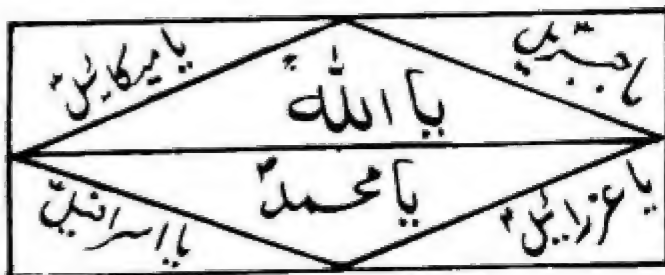 یا جبریل
یا میکائیل
یا اللہ
یا محمد
یا عزرائیل
یا اسرافیل